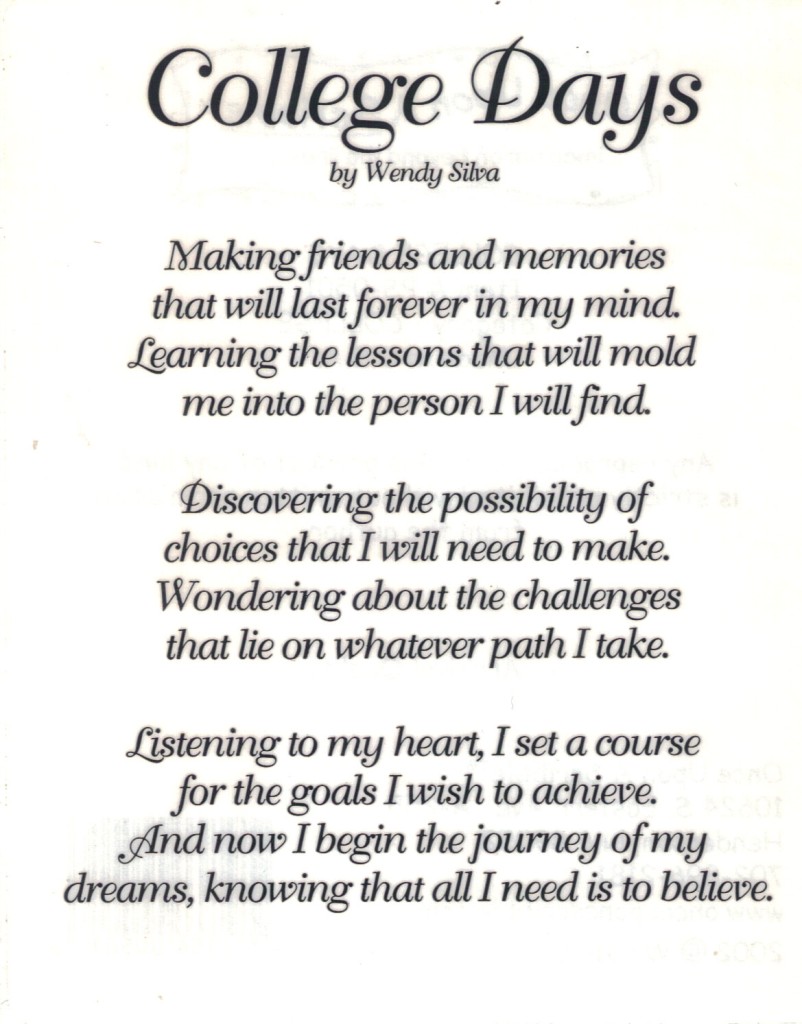 College Days
by Wendy Silva
Making friends and memories
that will last forever in my mind.
Learning the lessons that will mold
me into the person I will find.
Discovering the possibility of
choices that I will need to make.
Wondering about the challenges
that lie on whatever path I take.
Listening to my heart, I set a course
for the goals I wish to achieve.
And now I begin the journey of my
dreams, knowing that all I need is to believe.